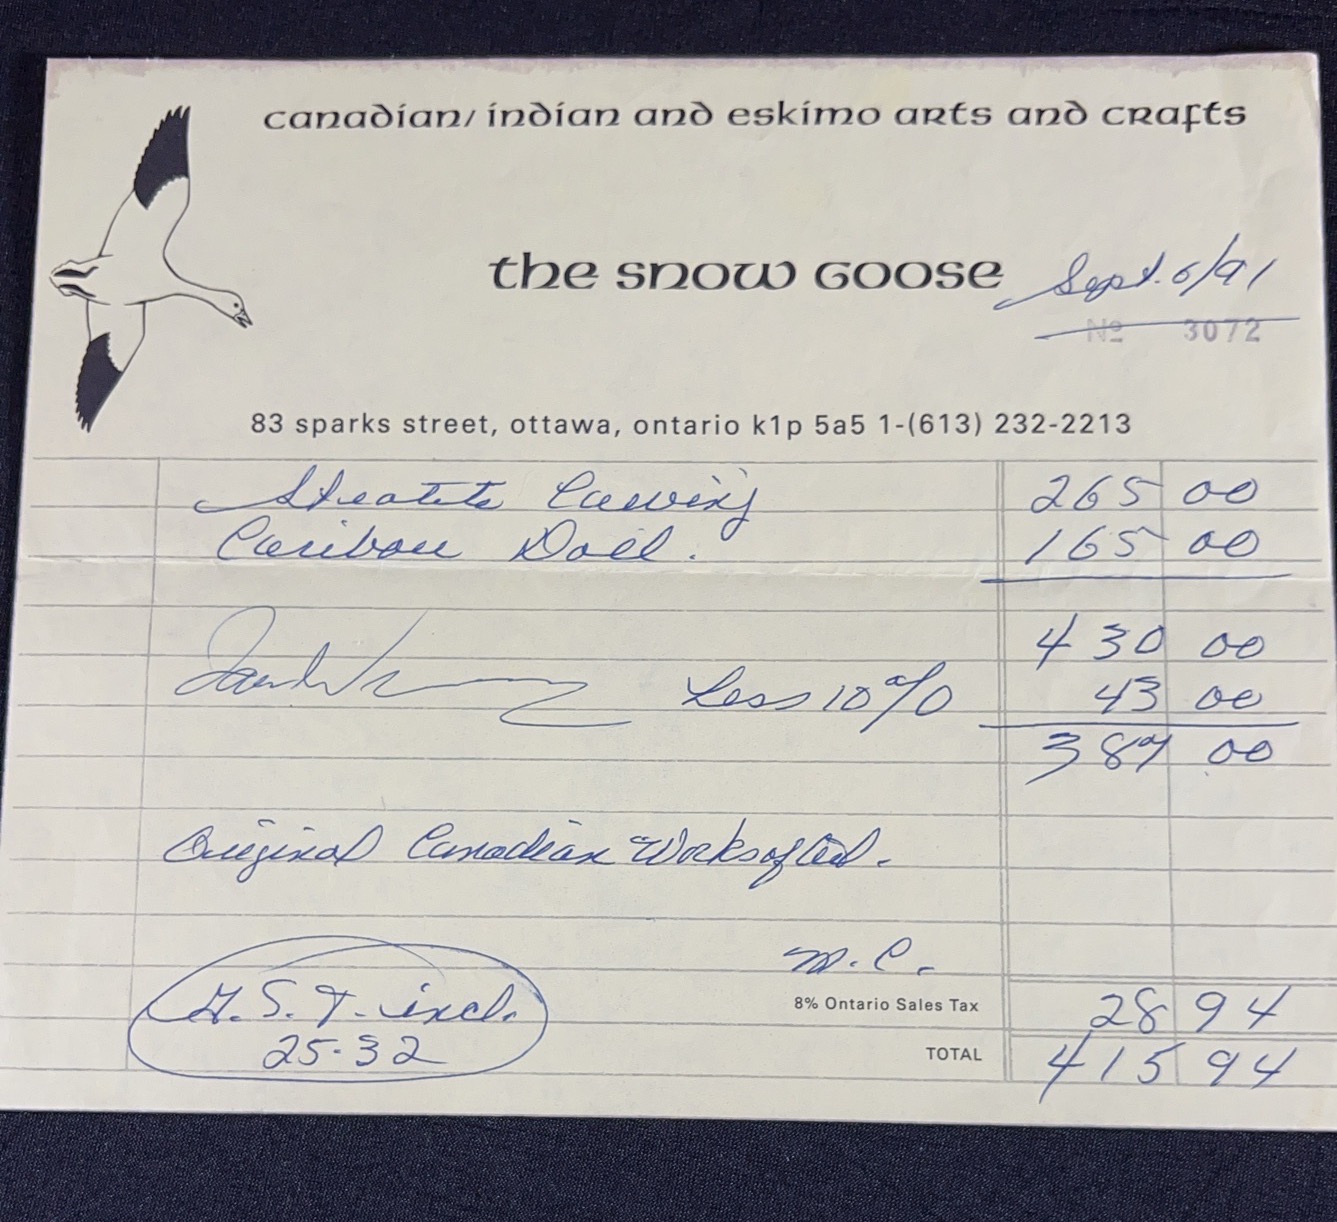 canadian/ indian and eskimo arts and crafts
the snow goose
Sept. 6/91
No 3072
83 sparks street, ottawa, ontario k1p 5a5 1-(613) 232-2213
Steatite Carving 265 00
Caribou Doll. 165 00
430 00
Less 10% 43 00
387 00
Original Canadian Works of Art.
m.c.
G.S.T. incl.
25.32
8% Ontario Sales Tax 28 94
TOTAL 415 94